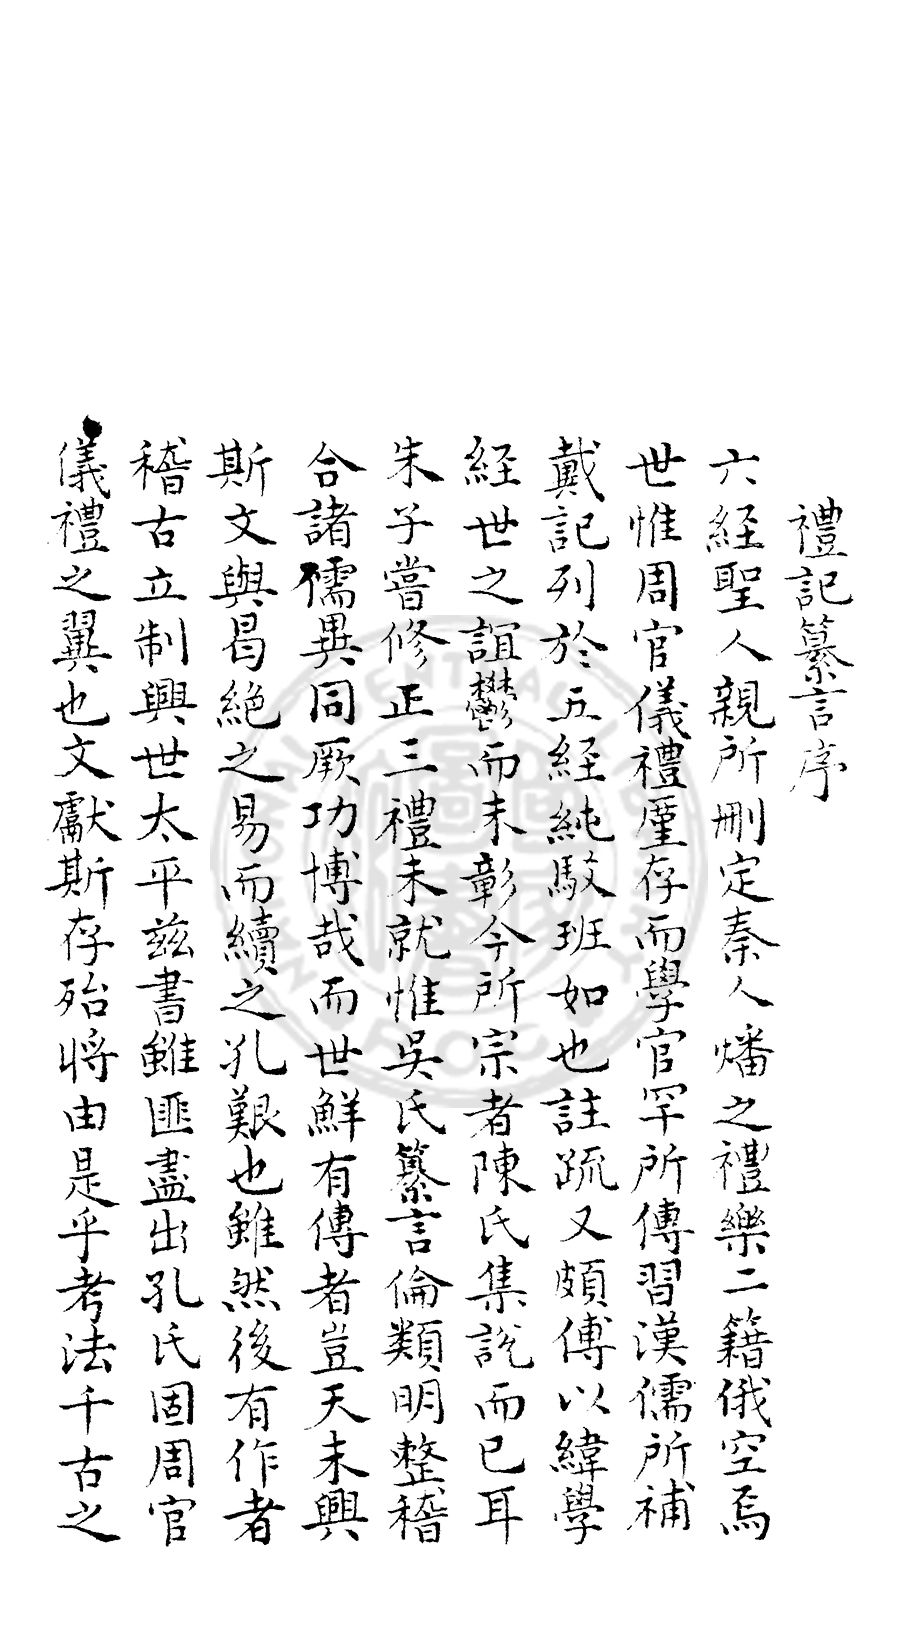 禮記纂言序
六經聖人親所刪定秦人燔之禮樂二籍俄空焉
世惟周官儀禮厪存而學官罕所傳習漢儒所補
戴記列於五經純駁班如也註疏又頗傅以緯學
經世之誼鬱而未彰今所宗者陳氏集說而已耳
朱子嘗修正三禮未就惟吳氏纂言倫類明整稽
合諸儒異同厥功博哉而世鮮有傳者豈天未興
斯文與曷絕之易而續之孔艱也雖然後有作者
稽古立制興世太平茲書雖匪盡出孔氏固周官
儀禮之翼也文獻斯存殆將由是乎考法千古之